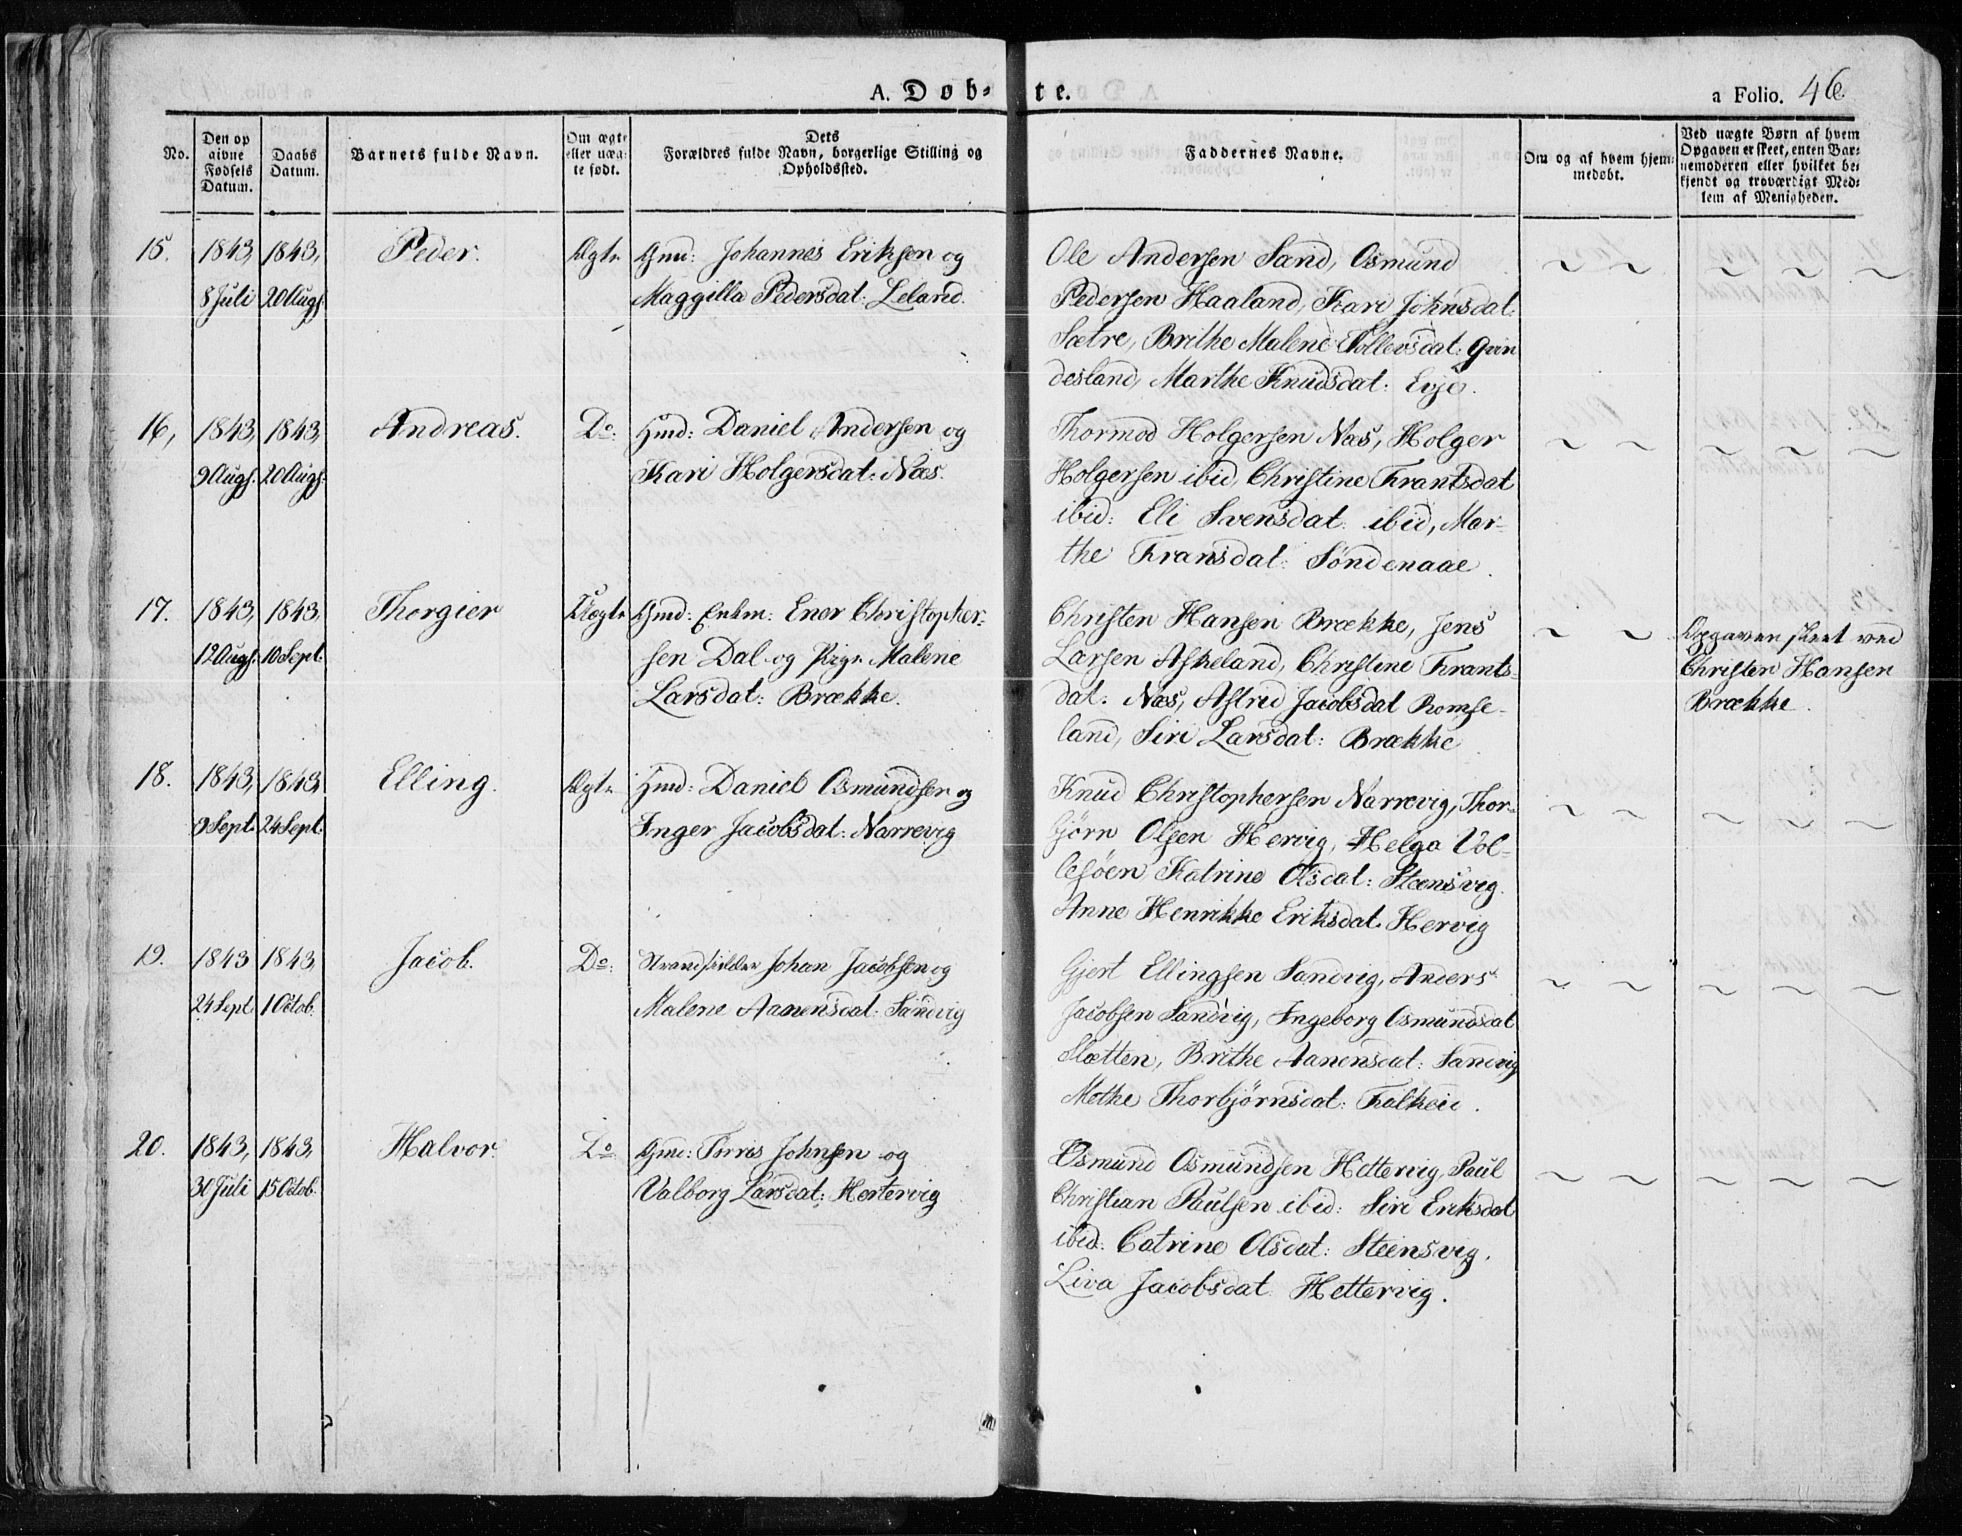 A. Døb-
te.
a Folio. 46
No.
Den op
givne
Fødsels
Datum.
Daabs
Datum.
Barnets fulde Navn.
Om ægte
eller uæg-
te født.
Dets
Forældres fulde Navn, borgerlige Stilling og
Opholdssted.
Faddernes Navne.
Om og af hvem hjem-
medøbt.
Ved uægte Børn af hvem
Opgaven er skeet, enten Bar-
nemoderen eller hvilket be-
kjendt og troværdigt Med-
lem af Menigheden.
15.
1843,
8 Juli
1843,
20 Augs.
Peder.
Ægte
Gmd: Johannes Eriksen og
Maggilla Pedersdat: Leland.
Ole Andersen Sand, Osmund
Pedersen Haaland, Kari Johnsdat:
Sætre, Brithe Malene Tollevsdat: Qvin
desland, Marthe Knudsdat: Erje.
16,
1843,
9 Augs.
1843,
20 Augs.
Andreas.
Do:
Hmd: Daniel Andersen og
Kari Holgersdat: Næs.
Thormod Holgersen Næs, Holger
Holgersen ibid, Christine Frantsdat
ibid: Eli Svensdat: ibid, Mar-
the Fransdat: Søndenaae.
17.
1843,
12 Augs.
1843,
10 Sept.
Thorgier
Uægte
Gmd: Enkm: Ener Christopher-
sen Dal og Pige Malene
Larsdat: Brække.
Christen Hansen Brække, Jens
Larsen Askeland, Christine Frants-
dat: Næs, Astred Jacobsdat Romse-
land, Siri Larsdat: Brække
Opgaven skeet ved
Christen Hansen
Brække.
18.
1843,
9 Sept.
1843,
24 Sept.
Elling.
Ægte
Hmd: Daniel Osmundsen og
Inger Jacobsdat: Narrevig
Knud Christophersen Narrevig, Thor-
bjørn Olsen Hervig, Helga Vol-
lesøen, Katrine Olsdat: Steensvig.
Anne Henrikke Eriksdat: Hervig
19.
1843
24 Sept.
1843,
1 Octob.
Jacob.
Do:
Strandsidder Johan Jacobsen og
Malene Aanensdat: Sandvig
Gjert Ellingsen Sandvig, Anders
Jacobsen Sandvig, Ingeborg Osmundsdat
Slætten, Brithe Aanensdat: Sandvig
Mothe Thorbjørnsdat: Falkeii.
20.
1843,
30 Juli
1843,
15 Octob.
Halvor.
Do
Gmd: Torris Johnsen og
Valborg Larsdat: Hertervig
Osmund Osmundsen Hettervig, Paul
Christian Paulsen ibid: Siri Eriksdat
ibid: Catrine Olsdat: Steensvig.
Liva Jacobsdat: Hettervig.